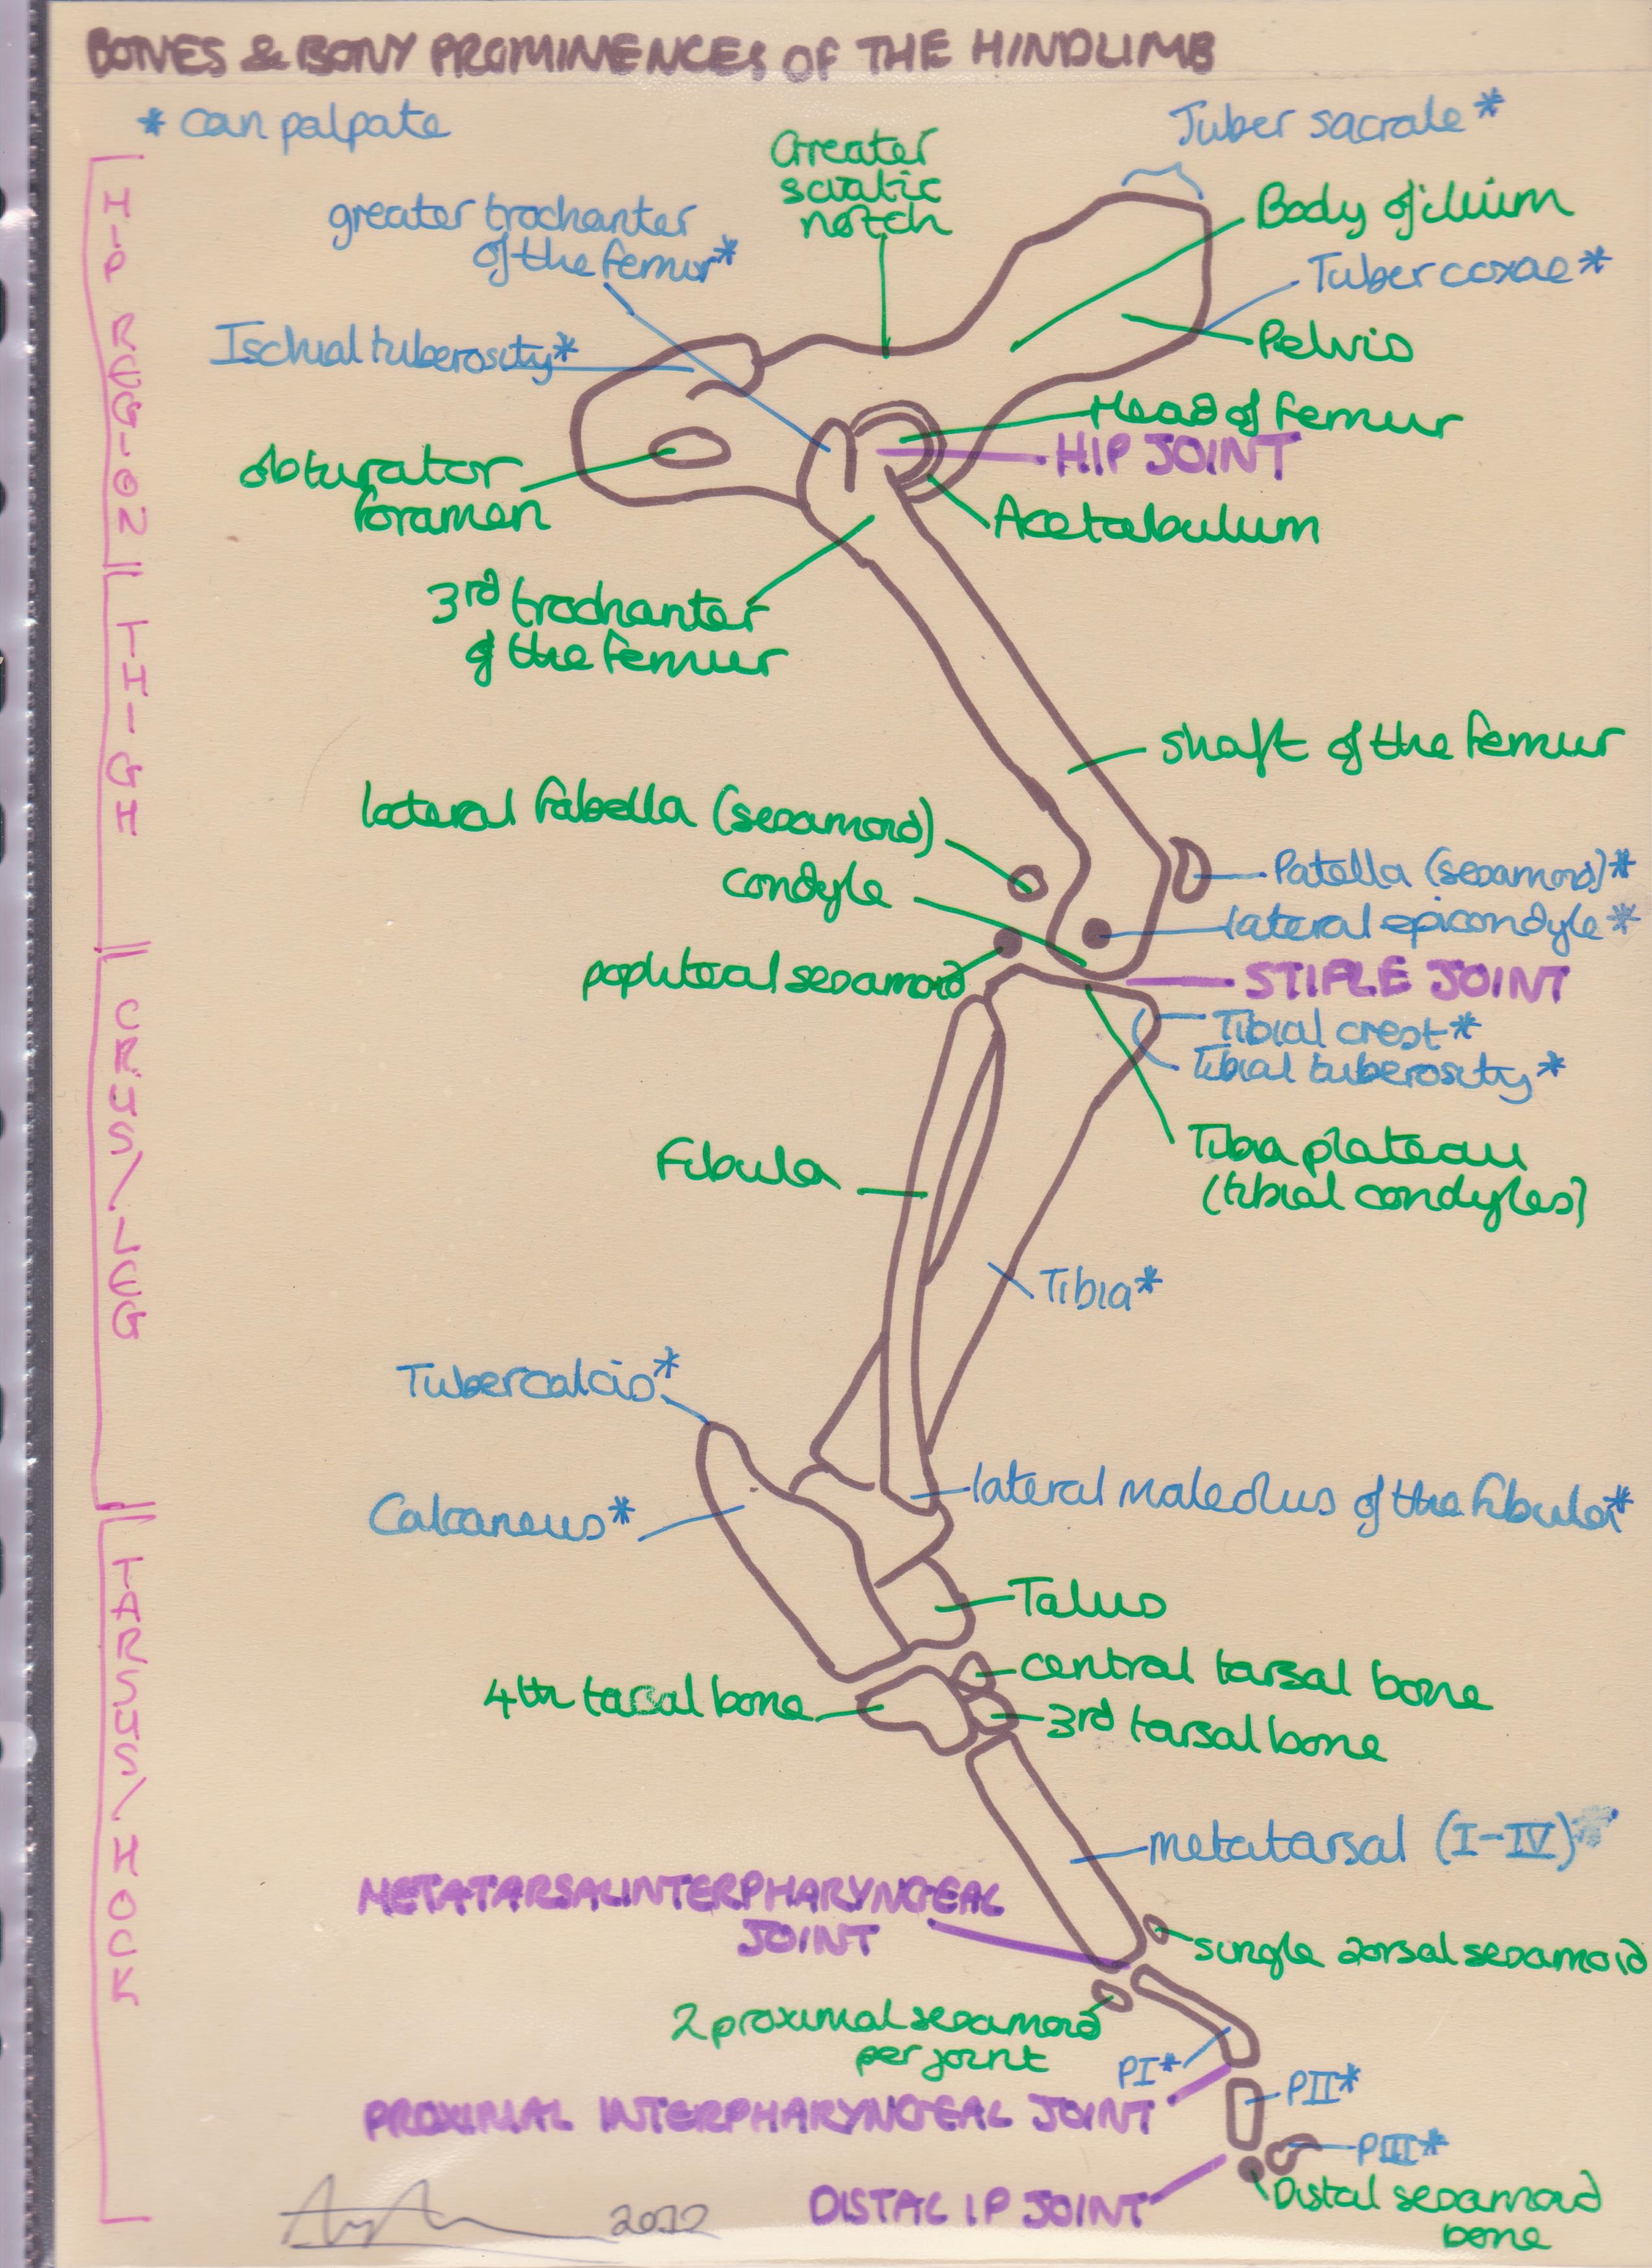 BONES & BONY PROMINENCES OF THE HINDLIMB
* can palpate
Tuber sacrale*
Greater
sciatic
notch
greater trochanter
of the femur*
Body of ilium
Tuber coxae*
Ischial tuberosity*
Pelvis
Head of femur
HIP JOINT
obturator
foramen
Acetabulum
3rd trochanter
of the femur
HIP REGION
THIGH
shaft of the femur
lateral fabella (sesamoid)
condyle
Patella (sesamoid)*
lateral epicondyle*
popliteal sesamoid
STIFLE JOINT
Tibial crest*
Tibial tuberosity*
CRUS/LEG
Fibula
Tibia plateau
(tibial condyles)
Tibia*
Tuber calcis*
Calcaneus*
lateral maleolus of the fibula*
TARSUS/HOCK
Talus
4th tarsal bone
central tarsal bone
3rd tarsal bone
metatarsal (I-IV)*
METATARSALINTERPHARYNGEAL
JOINT
single dorsal sesamoid
2 proximal sesamoid
per joint
PI*
PII*
PROXIMAL INTERPHARYNGEAL JOINT
PIII*
DISTAL IP JOINT
Distal sesamoid
bone
2012